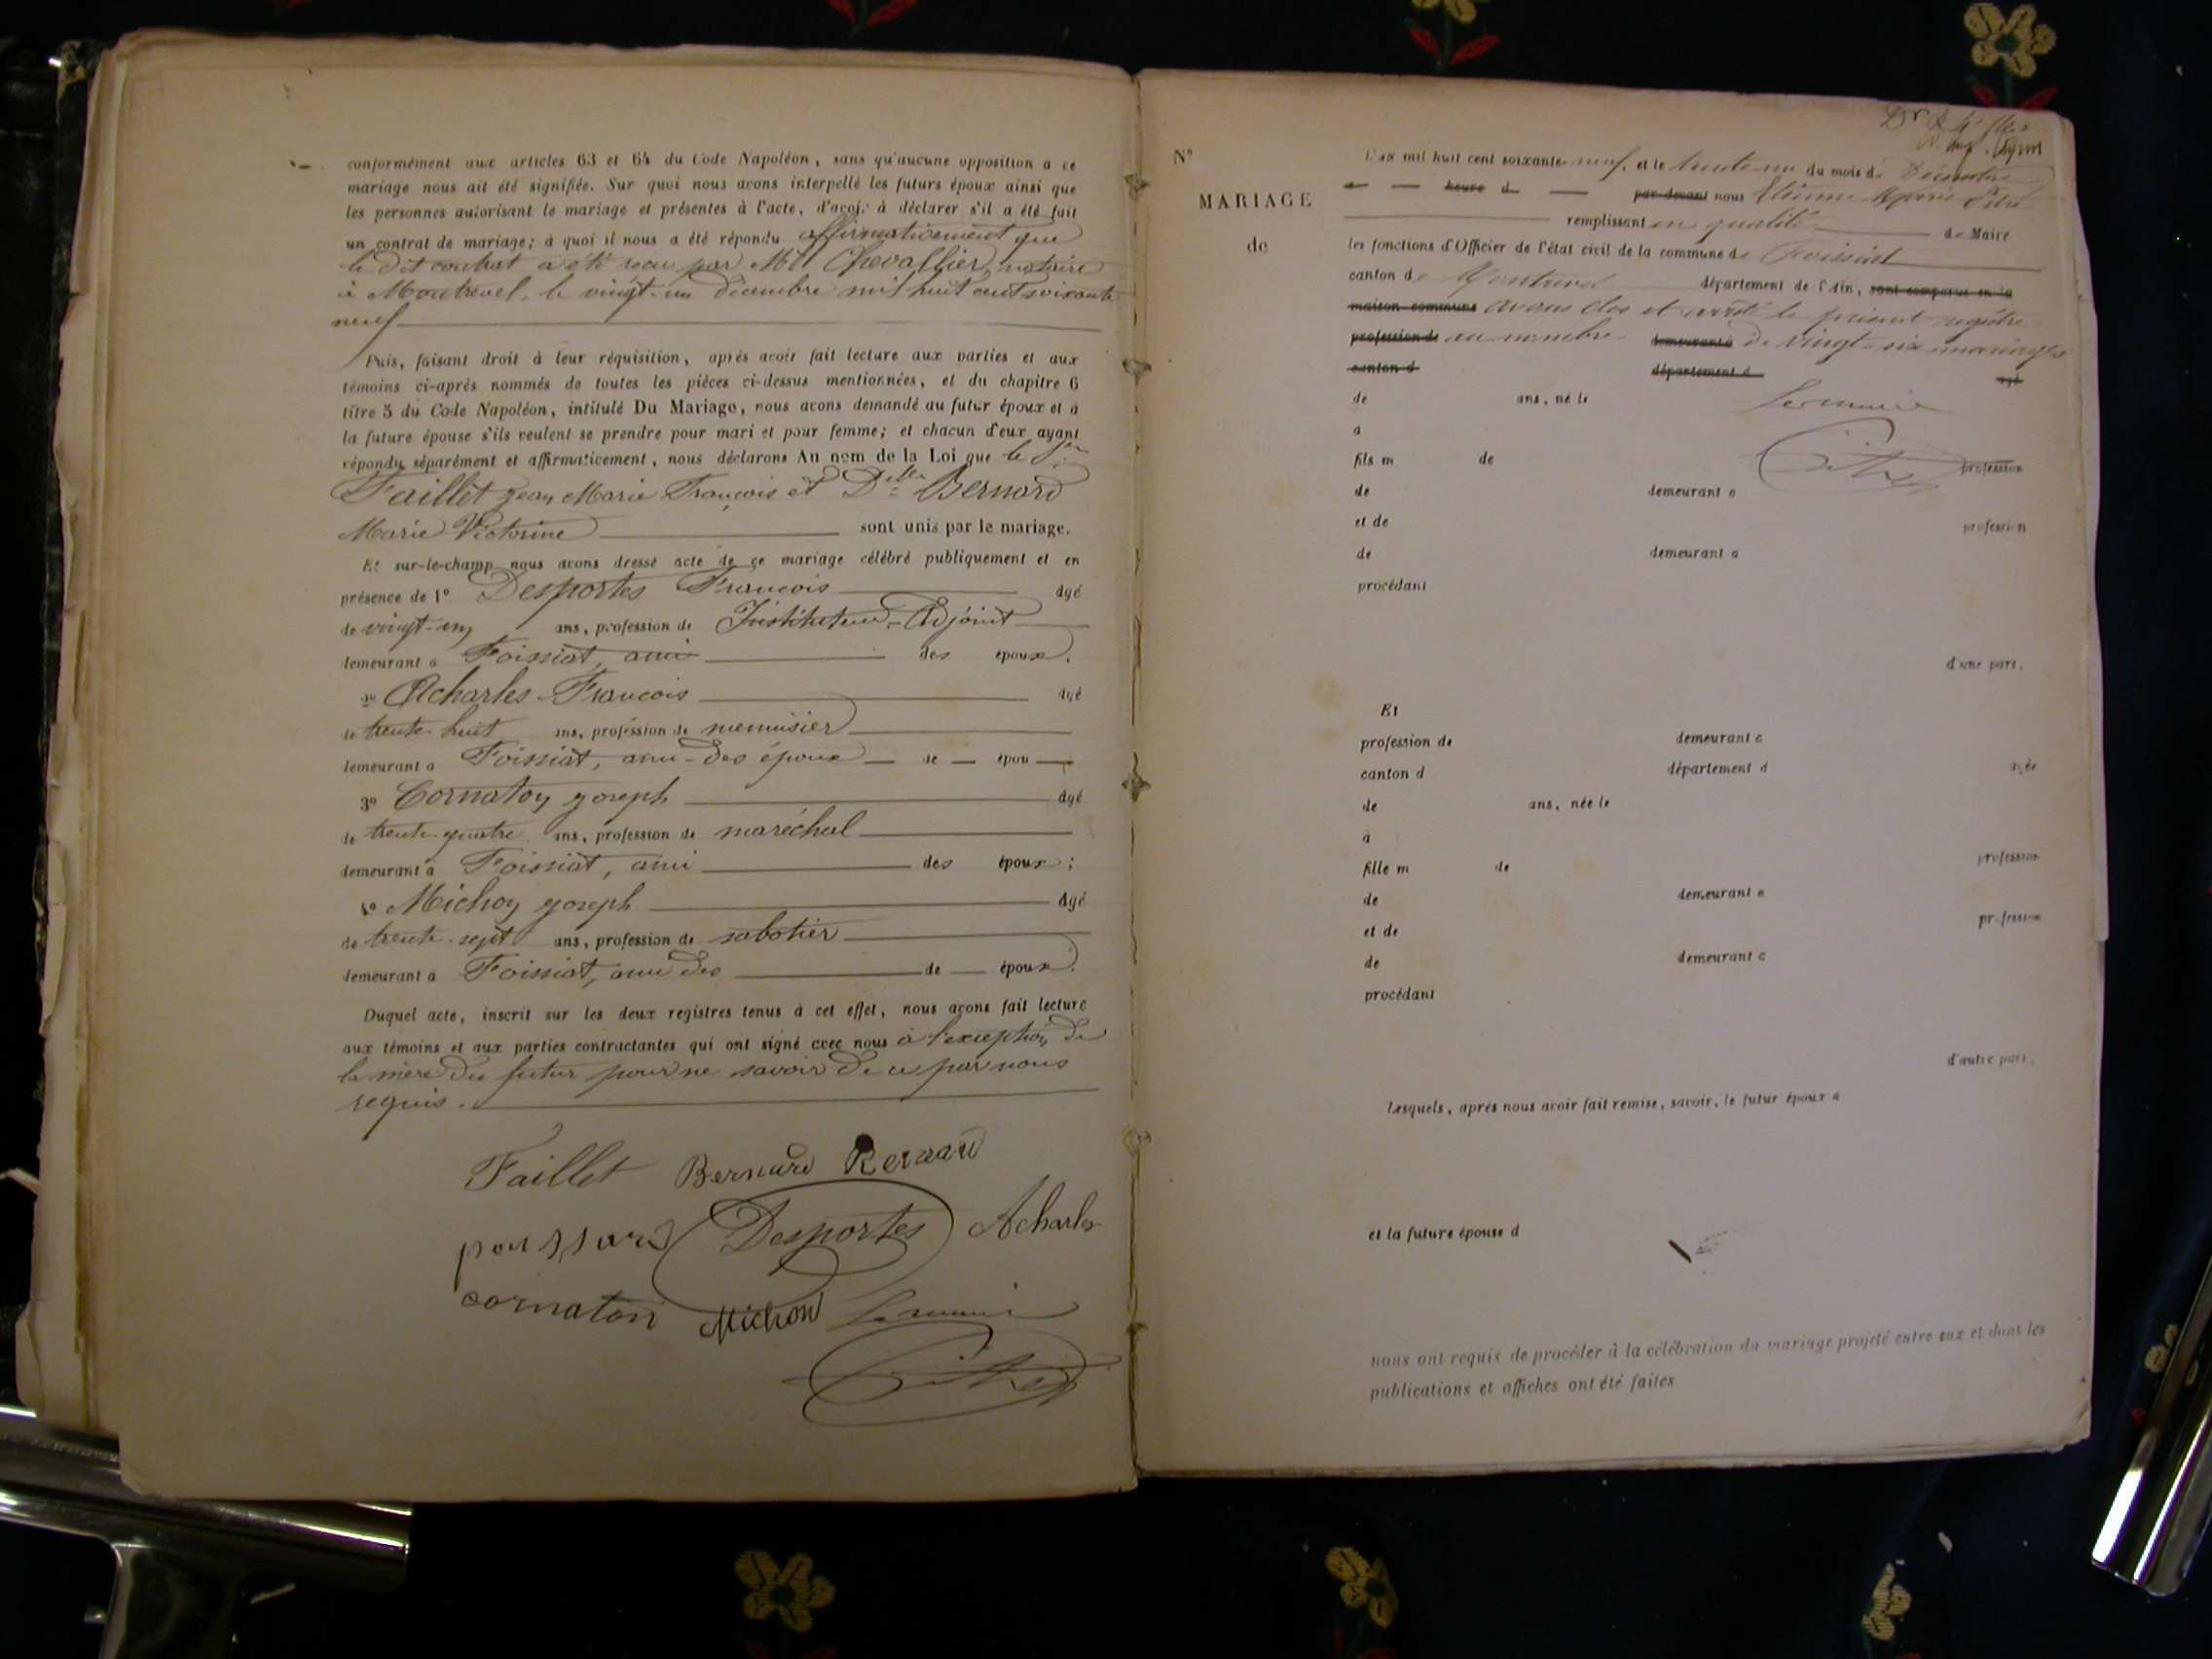 conformément aux articles 63 et 64 du Code Napoléon, sans qu'aucune opposition à ce
mariage nous ait été signifiée. Sur quoi nous avons interpellé les futurs époux ainsi que
les personnes autorisant le mariage et présentes à l'acte, d'avoir à déclarer s'il a été fait
un contrat de mariage; à quoi il nous a été répondu affirmativement que
le dit contrat a été reçu par Me Chevallier, notaire
à Montrevel, le vingt-un décembre mil huit cent soixante
neuf
Puis, faisant droit à leur réquisition, après avoir fait lecture aux parties et aux
témoins ci-après nommés de toutes les pièces ci-dessus mentionnées, et du chapitre 6
titre 5 du Code Napoléon, intitulé Du Mariage, nous avons demandé au futur époux et à
la future épouse s'ils veulent se prendre pour mari et pour femme; et chacun d'eux ayant
répondu séparément et affirmativement, nous déclarons Au nom de la Loi que le Sr
Faillet Jean Marie François et Dlle Bernard
Marie Victorine sont unis par le mariage.
Et sur-le-champ nous avons dressé acte de ce mariage célébré publiquement et en
présence de 1° Desportes François âgé
de vingt-un ans, profession de Instituteur-Adjoint
demeurant à Foissiat, ami des époux.
2° Acharles François âgé
de trente-huit ans, profession de menuisier
demeurant à Foissiat, ami des époux de épou
3° Cornaton Joseph âgé
de trente-quatre ans, profession de maréchal
demeurant à Foissiat, ami des époux;
4° Michon Joseph âgé
de trente-sept ans, profession de sabotier
demeurant à Foissiat, ami des de époux.
Duquel acte, inscrit sur les deux registres tenus à cet effet, nous avons fait lecture
aux témoins et aux parties contractantes qui ont signé avec nous à l'exception de
la mère du futur pour ne savoir de ce par nous
requis.
Faillet Bernard
Desportes Acharles
cornaton Michon Le maire
N°
MARIAGE
de
L'an mil huit cent soixante-neuf, et le trente un du mois de Décembre
heure d par-devant nous Etienne Marie
remplissant en qualité de Maire
les fonctions d'Officier de l'état civil de la commune de Foissiat
canton de Montrevel département de l'Ain, sont comparus en la
maison commune avons clos et arrêté le présent registre
profession de au nombre demeurant à de vingt-six mariages
canton d département d âgé
de ans, né le Le maire
à
fils m de profession
de demeurant à
et de profession
de demeurant à
procédant
d'une part,
Et
profession de demeurant à
canton d département d âgée
de ans, née le
à
fille m de profession
de demeurant à
et de profession
de demeurant à
procédant
d'autre part,
Lesquels, après nous avoir fait remise, savoir, le futur époux d
et la future épouse d
nous ont requis de procéder à la célébration du mariage projeté entre eux et dont les
publications et affiches ont été faites